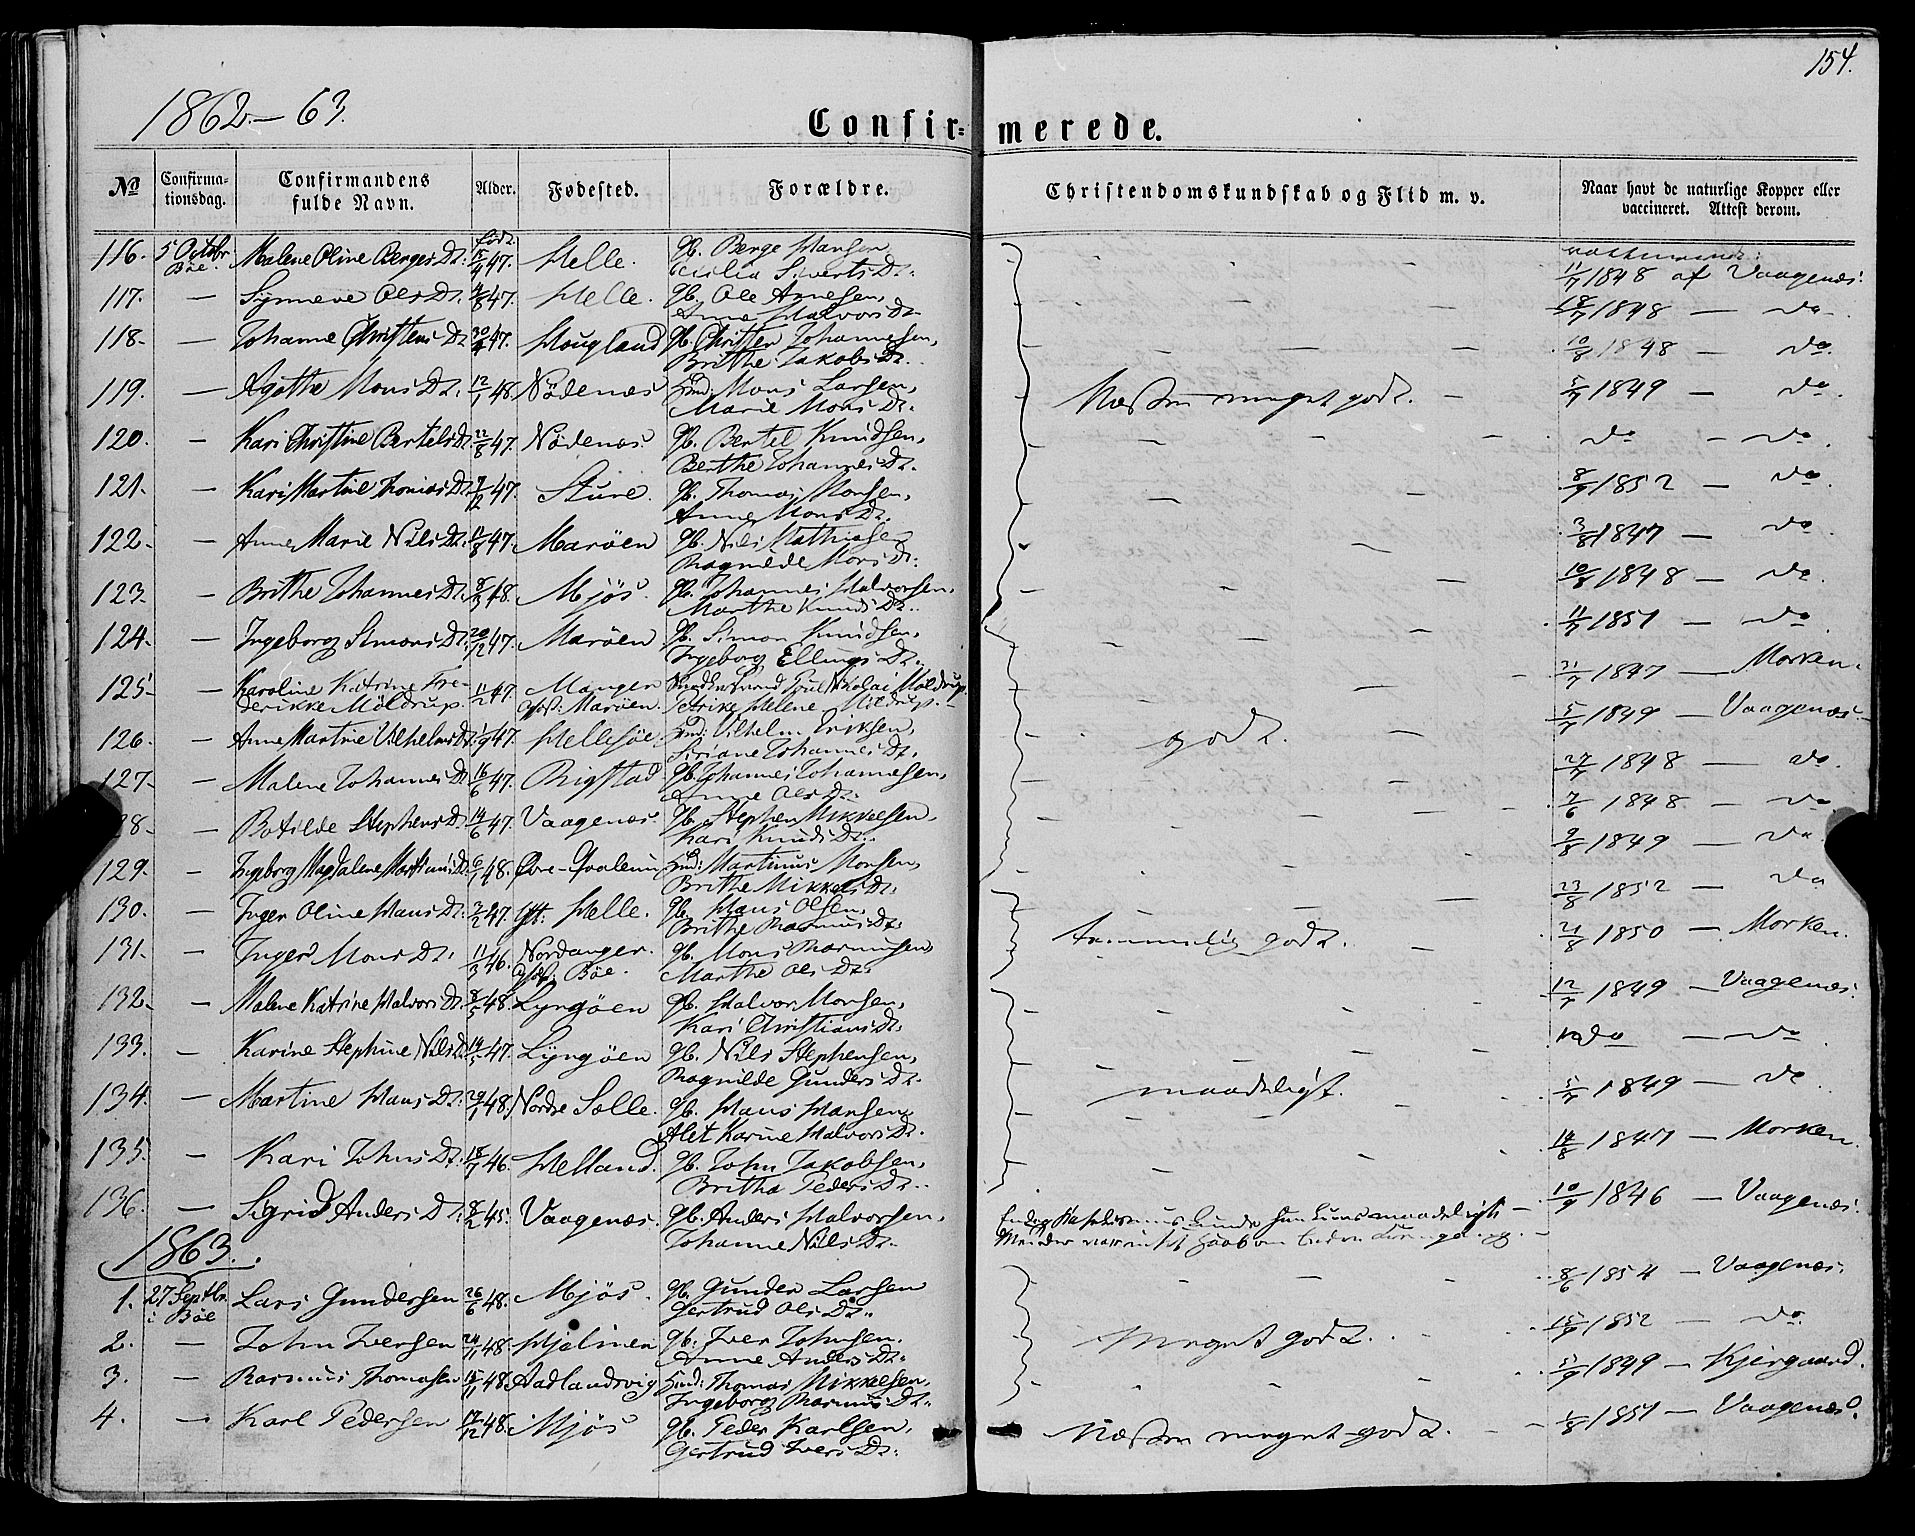 154.
1862.-63.
Confir= merede.
№ Confirma-tionsdag. Confirmandens fulde Navn. Alder. Fødested. Forældre. Christendomskundskab og Flid m. v. Naar havt de naturlige Kopper eller vaccineret. Attest derom.
116. 5 Octbr Bøe. Malene Oline Berges Dt. født 47. Helle. Gb. Berge Hansen
Cecilia Siverts Dt. 11/7 1848 af Vaagenæs:
117. — Synneve Ols Dt. 4/8 47. Helle. Gb. Ole Arnesen,
Anne Halvors Dt. 18/7 1848 — do.
118. — Johanne Christens Dt. 47. Hougland Gb. Christen Johannesen,
Brithe Jakobs Dt. 10/8 1848 — do.
119. — Agathe Mons Dt. 12/1 48. Nödenæs Hmd: Mons Larsen,
Marie Mons Dt. Næsten meget godt. 5/7 1849 do
120. — Kari Christine Bertels Dt. 22/8 47. Nödenæs. Gb. Bertel Knudsen,
Berthe Johannes Dt. do — do.
121. — Kari Martine Thomas Dt. 7/12 47. Sture. Gb. Thomas Monsen,
Anne Mons Dt. 8/9 1852 — do.
122. — Anne Marie Nils Dt. 47. Maröen Gb. Nils Mathiasen
Ragnilde Mons Dt. 3/8 1847 — do
123. — Brithe Johannes Dt. 8/3 48. Mjös. Gb. Johannes Halvorsen,
Marthe Knuds Dt. 10/8 1848 — do.
124. — Ingeborg Simons Dt. 20/12 47. Maröen Gb. Simon Knudsen,
Ingeborg Ellings Dt. 1851 — do
125 — Karoline Katrine Fre-
derikke Möldrup. 47. Manger Maröen. Poul Nikolai Möldrup.
Petrike Helene Möldrup. 21/7 1847 — Morken.
126. — Anne Martine Vilhelms Dt. 1/9 47. Hellesöe Hmd: Vilhelm Eriksen,
Siriane Johannes Dt. godt. 5/7 1849 — Vaagenæs
127. — Malene Johannes Dt. 16/6 47. Rigstad Gb. Johannes Johannesen,
Anne Ols Dt. 27/7 1848 — do.
128. — Botilde Stephens Dt. 14/6 47. Vaagenæs. Gb. Stephen Mikkelsen,
Kari Knuds Dt. 7/6 1848 — do
129. — Ingeborg Magdalene Martinus Dt. 6/1 48. Øvre-Qvalem Hmd: Martinus Monsen,
Brithe Mikkels Dt. 9/8 1849 — do
130. — Inger Oline Hans Dt. 3/2 47. Helle. Gb. Hans Olsen,
Brithe Rasmus Dt. 23/8 1852 — do
131. — Inger Mons Dt. 11/3 46. Nordanger. Bøe. Gb. Mons Rasmusen
Marthe Ols Dt. temmelig godt. 21/8 1850 — Morken.
132. — Malene Katrine Halvors Dt. 48. Lyngöen Gb. Halvor Monsen,
Kari Christians Dt. 12/7 1849 — Vaagenæs.
133. — Karine Stephine Nils Dt. 47. Lyngöen Gb. Nils Stephensen,
Ragnilde Gunders Dt. do — do
134. — Martine Hans Dt. 29/1 48. Nordre Solle. Gb. Hans Hansen,
Alet Karine Halvors Dt. maadeligt. 5/7 1849 — do
135. — Kari Johns Dt. 18/7 46. Helland. Gb. John Jakobsen,
Britha Peders Dt. 14/8 1847 — Morken.
136. — Sigrid Anders Dt. 8/2 45. Vaagenæs. Gb. Anders Halvorsen,
Johanne Nils Dt. 10/9 1846 — Vaagenæs.
1863.
1. 27 Septbr. i Bøe Lars Gundersen 26/6 48. Mjös. Gb. Gunder Larsen
Gertrud Ols Dt. 8/6 1854 — Vaagenæs.
2. — John Iversen 24/11 48. Hjelmen Gb. Iver Johnsen.
Anne Anders Dt. Meget godt. 15/9 1852 — do.
3. — Rasmus Thomasen 48. Aadlandsvig Hmd: Thomas Mikkelsen,
Ingeborg Rasmus Dt. 1849 — Kjergaard.
4. — Karl Pedersen 17/12 48. Mjös Gb. Peder Karlsen,
Gertrud Ivers Dt. Næsten meget godt. 1/8 1851 — Vaagenæs.